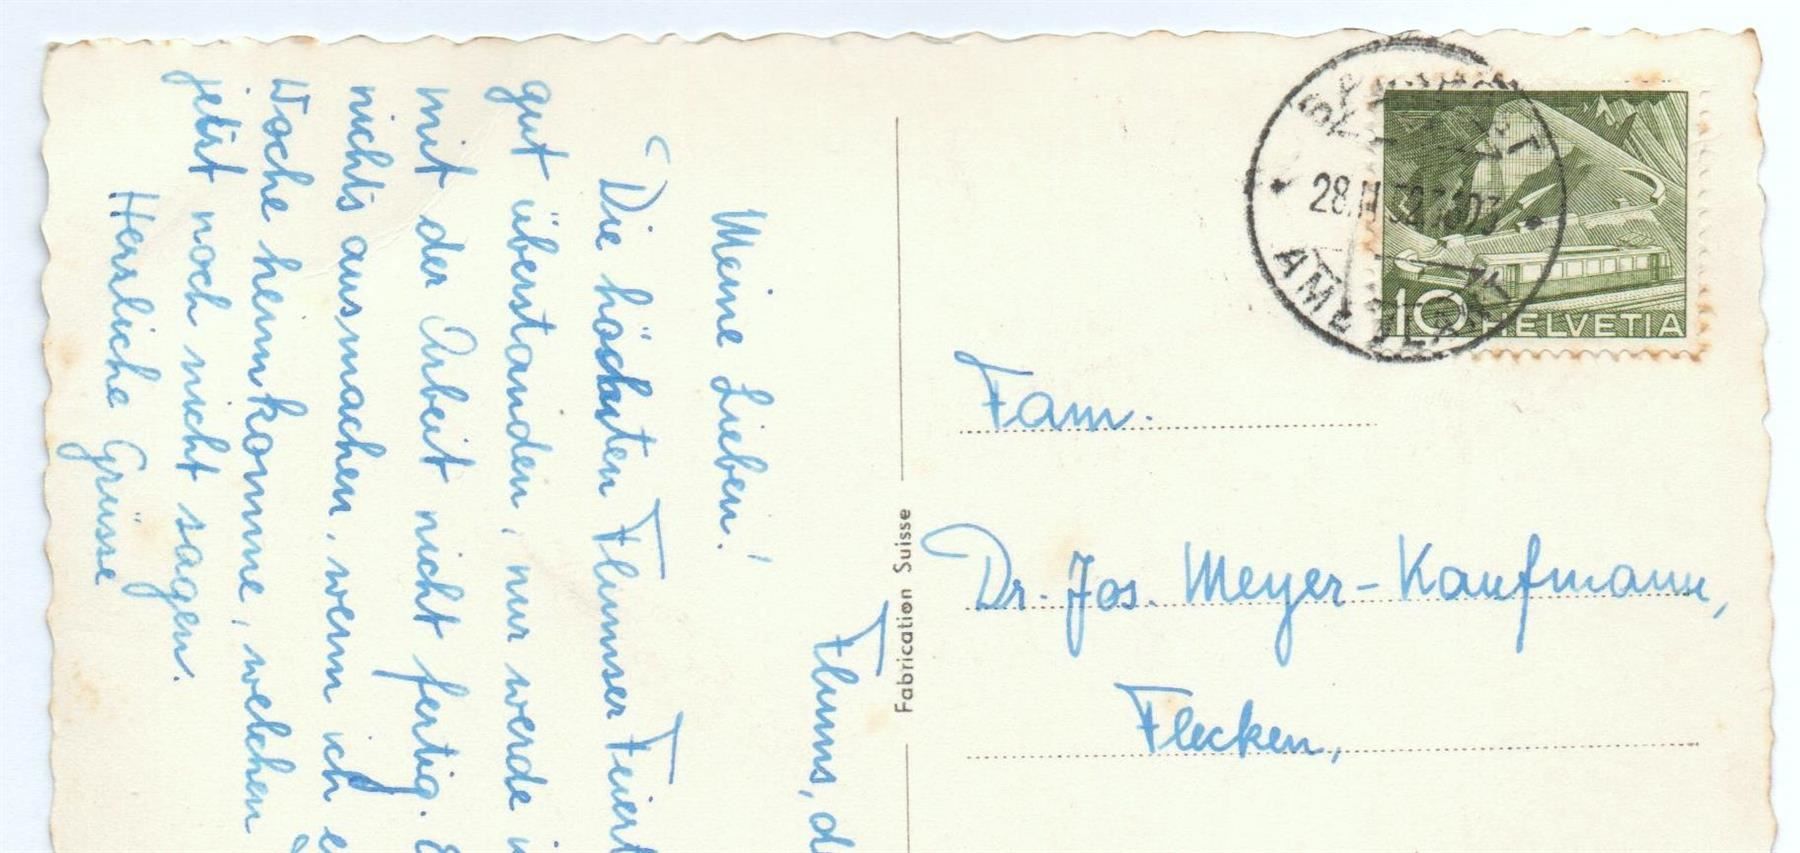 Flums, d
Meine Lieben!
Die höchsten Flumser Feiert
gut überstanden, nur werde i
mit der Arbeit nicht fertig. E
nichts ausmachen, wenn ich e
Woche heimkomme, welchen
jetzt noch nicht sagen.
Herzliche Grüsse
Fabrication Suisse
28.II.52
AM
10 HELVETIA
Fam.
Dr. Jos. Meyer-Kaufmann,
Flecken,